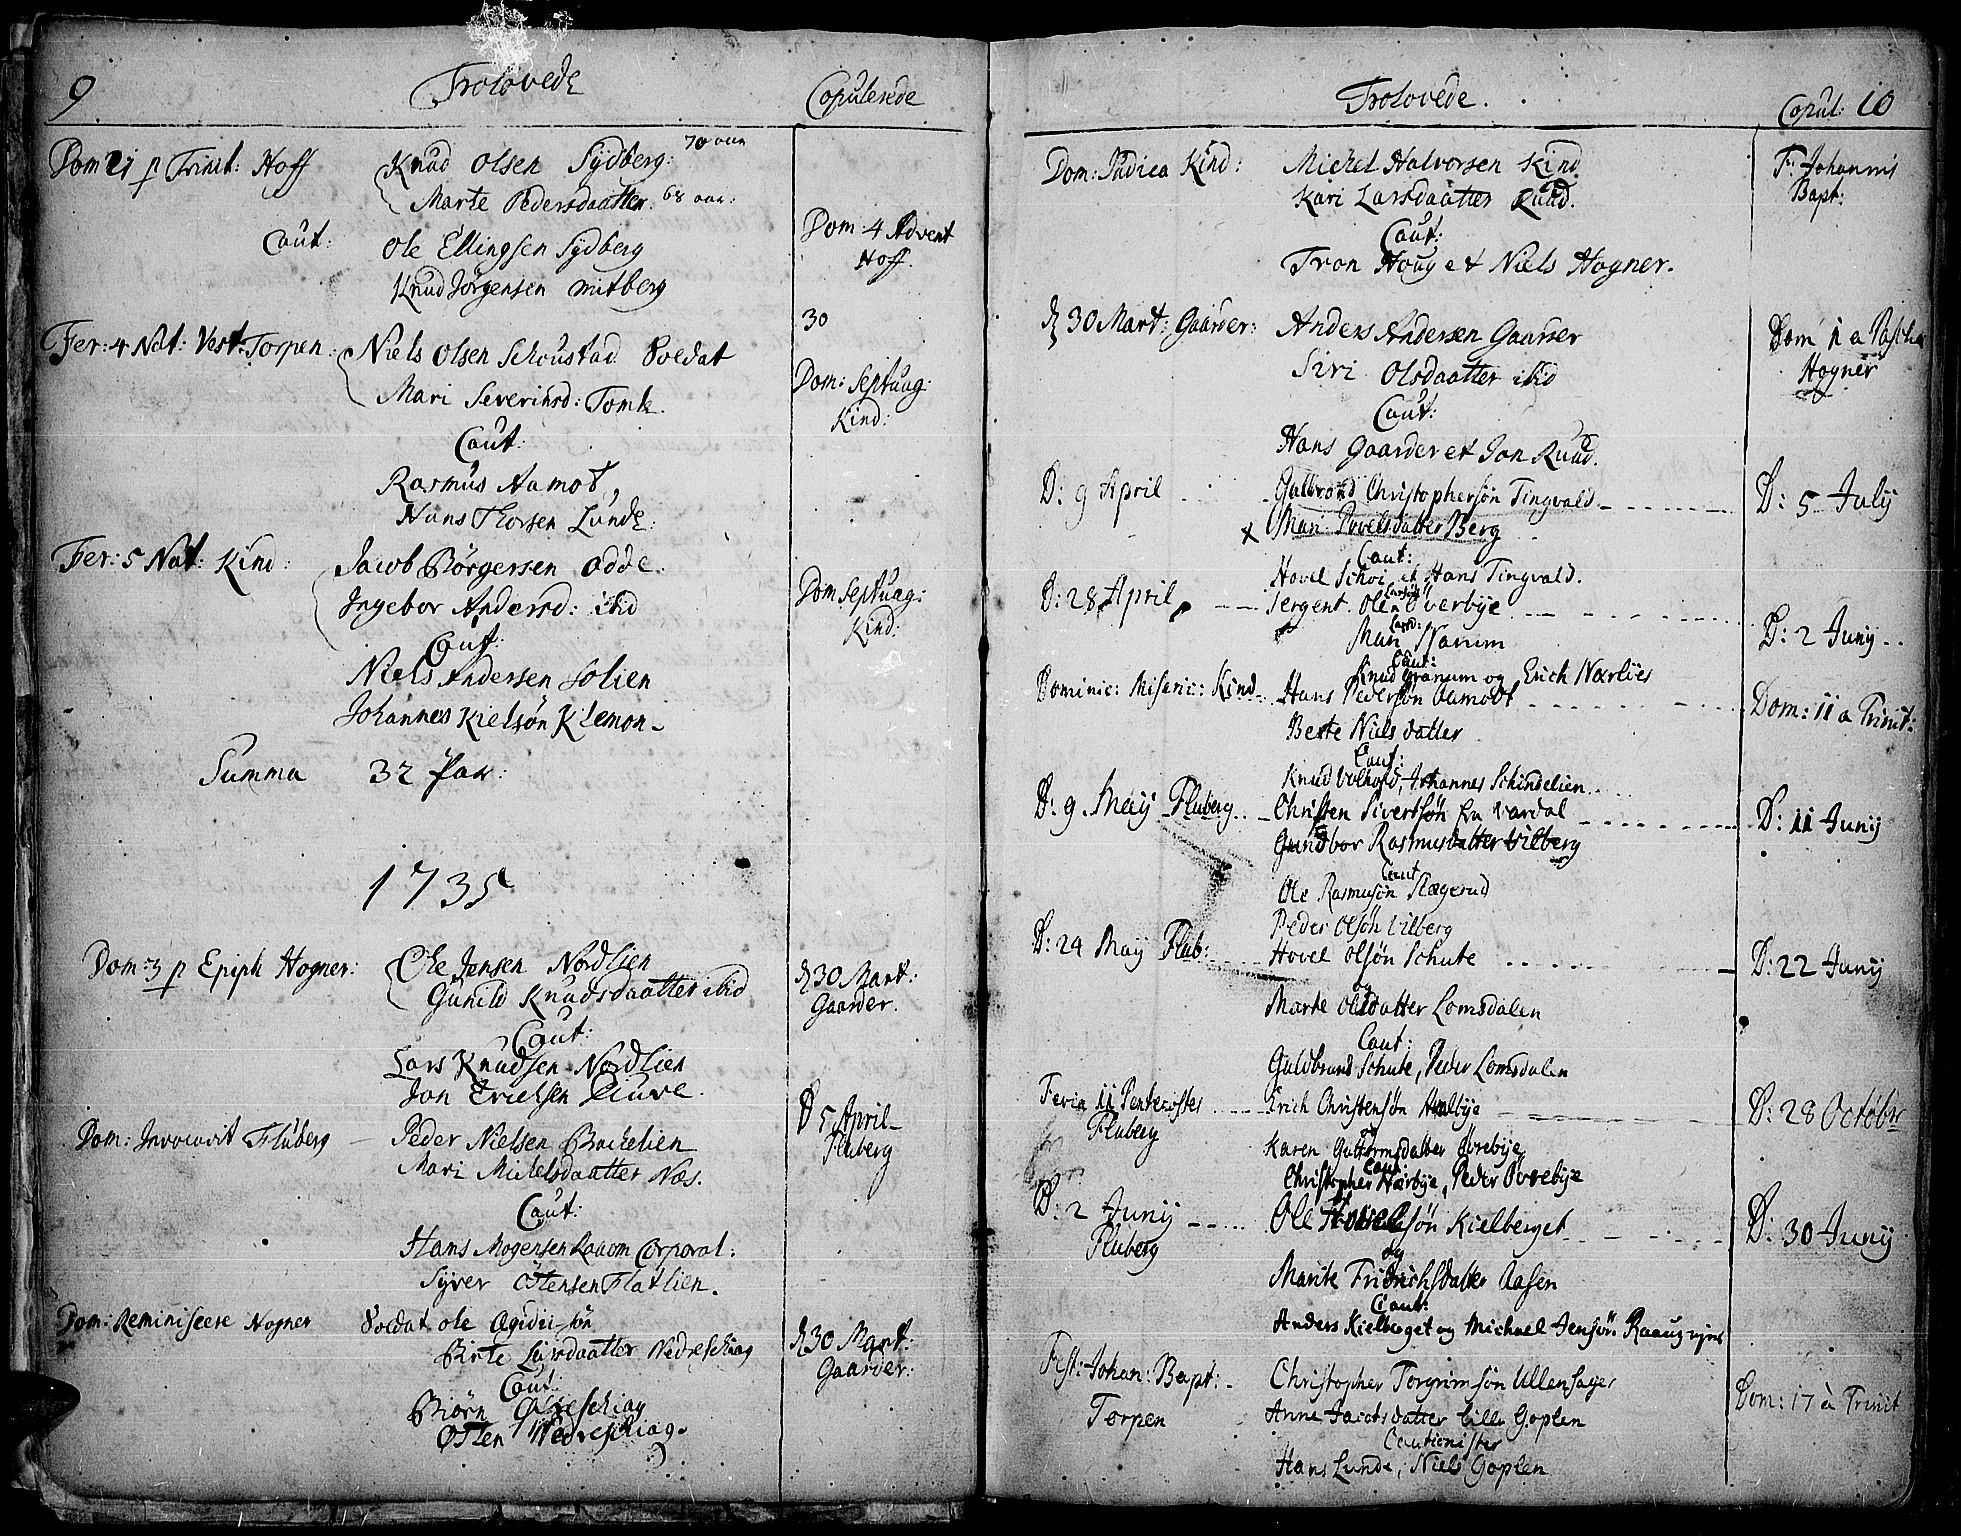 9
Trolovede
Copulerede
Dom 21 p Trinit: Hoff
Knud Olsen Sydberg: 70 aar
Marte Pedersdaatter 68 aar:
Dom: 4 Advent
Hoff.
Caut:
Ole Ellingsen Sydberg
Knud Jörgensen Mitberg
Fer: 4 Nat: Vest: Torpen:
Niels Olsen Schoustad Soldat
Mari Severinsd: Tomle.
30
Dom: Septuag:
Kind:
Caut:
Rasmus Aamot,
Hans Thorsen Lunde.
Fer: 5 Nat: Kind:
Jacob Börgersen Odde.
Ingebor Andersd: ibid
Dom Septuag:
Kind:
Caut:
Niels Andersen Solien
Johannes Kielsøn Klemon
Summa 32 Par:
1735
Dom: 3 p Epiph Hogner:
Ole Jensen Nordlien
Gunild Knudsdaatter ibid
d 30 Mart:
Gaarder.
Caut:
Lars Knudsen Nordlien
Jon Ericksen
Dom: Invocavit Fluberg
Peder Nielsen Backelien
Mari Mickelsdaatter Næs.
D 5 April
Fluberg
Caut:
Hans Mogensen Corporal:
Syver Östensen Flatlien.
Dom: Reminiscere Hogner
Soldat Ole
Birte Larsdaatter Nedreschiag
d 30 Mart:
Gaarder:
Caut:
Biörn
Østen Nedreschiag.
Trolovede.
Copul: 10
Dom: Judica Kind:
Michel Halvorsen Kind
Kari Larsdaatter Ruud.
F: Johannis
Bapt:
Caut:
Tron Houg et Niels Hogner.
d 30 Mart: Gaarder:
Anders Andersen Gaarder
Siri Olsdaatter ibid
Dom 1 a Pascha
Hogner
Caut:
Hans Gaarder et Jon Ruud.
D: 9 April
Gulbrand Christophersøn Tingvald
D: 5 July
x Mari Povelsdatter Berg
Caut:
Hovel Schøi et Hans Tingvald.
D: 28 April
Sergent Ole Larsøn Överbye
Mari Larsd: Narum
D: 2 Juny
Caut:
Knud Granum og Erich Nærbies
Dominic: Miseric: Kind
Hans Pedersøn Aamodt
Berte Niels datter
Dom: 11 a Trinit:
Caut:
Knud Volhold, Johannes Schindelien
D: 9 Maij Fluberg
Christen Sivertsøn fra Vardal
D: 11 Junij
Gundbor Rasmusdatter Vilberg
Caut
Ole Rasmusøn Slægerud
Peder Olsøn Vilberg
D: 24 Maij Flub:
Hovel Olsøn Schute
D: 22 Junij
og
Marte Olsdatter Lomsdalen
Caut:
Guldbrand Schute, Peder Lomsdalen
Feria 11 Pentecostes
Fluberg
Erich Christensøn
D: 28 Octobr
Karen Guttormsdatter Övrebye
Caut:
Christopher Nærbye, Peder Övrebye
D: 2 Junij
Fluberg
Ole Hovelsøn Kielberget
D: 30 Junij
og
Marite Fridrichsdatter Aasen
Caut:
Anders Kielberget og Michael Jensøn
Fest: Johan: Bapt:
Torpen
Christopher Torgrimsøn Ullensager
Dom: 17 à Trinit
Anne Jacobsdatter Lille Goplen
Cautionister
Hans Lunde, Niels Goplen